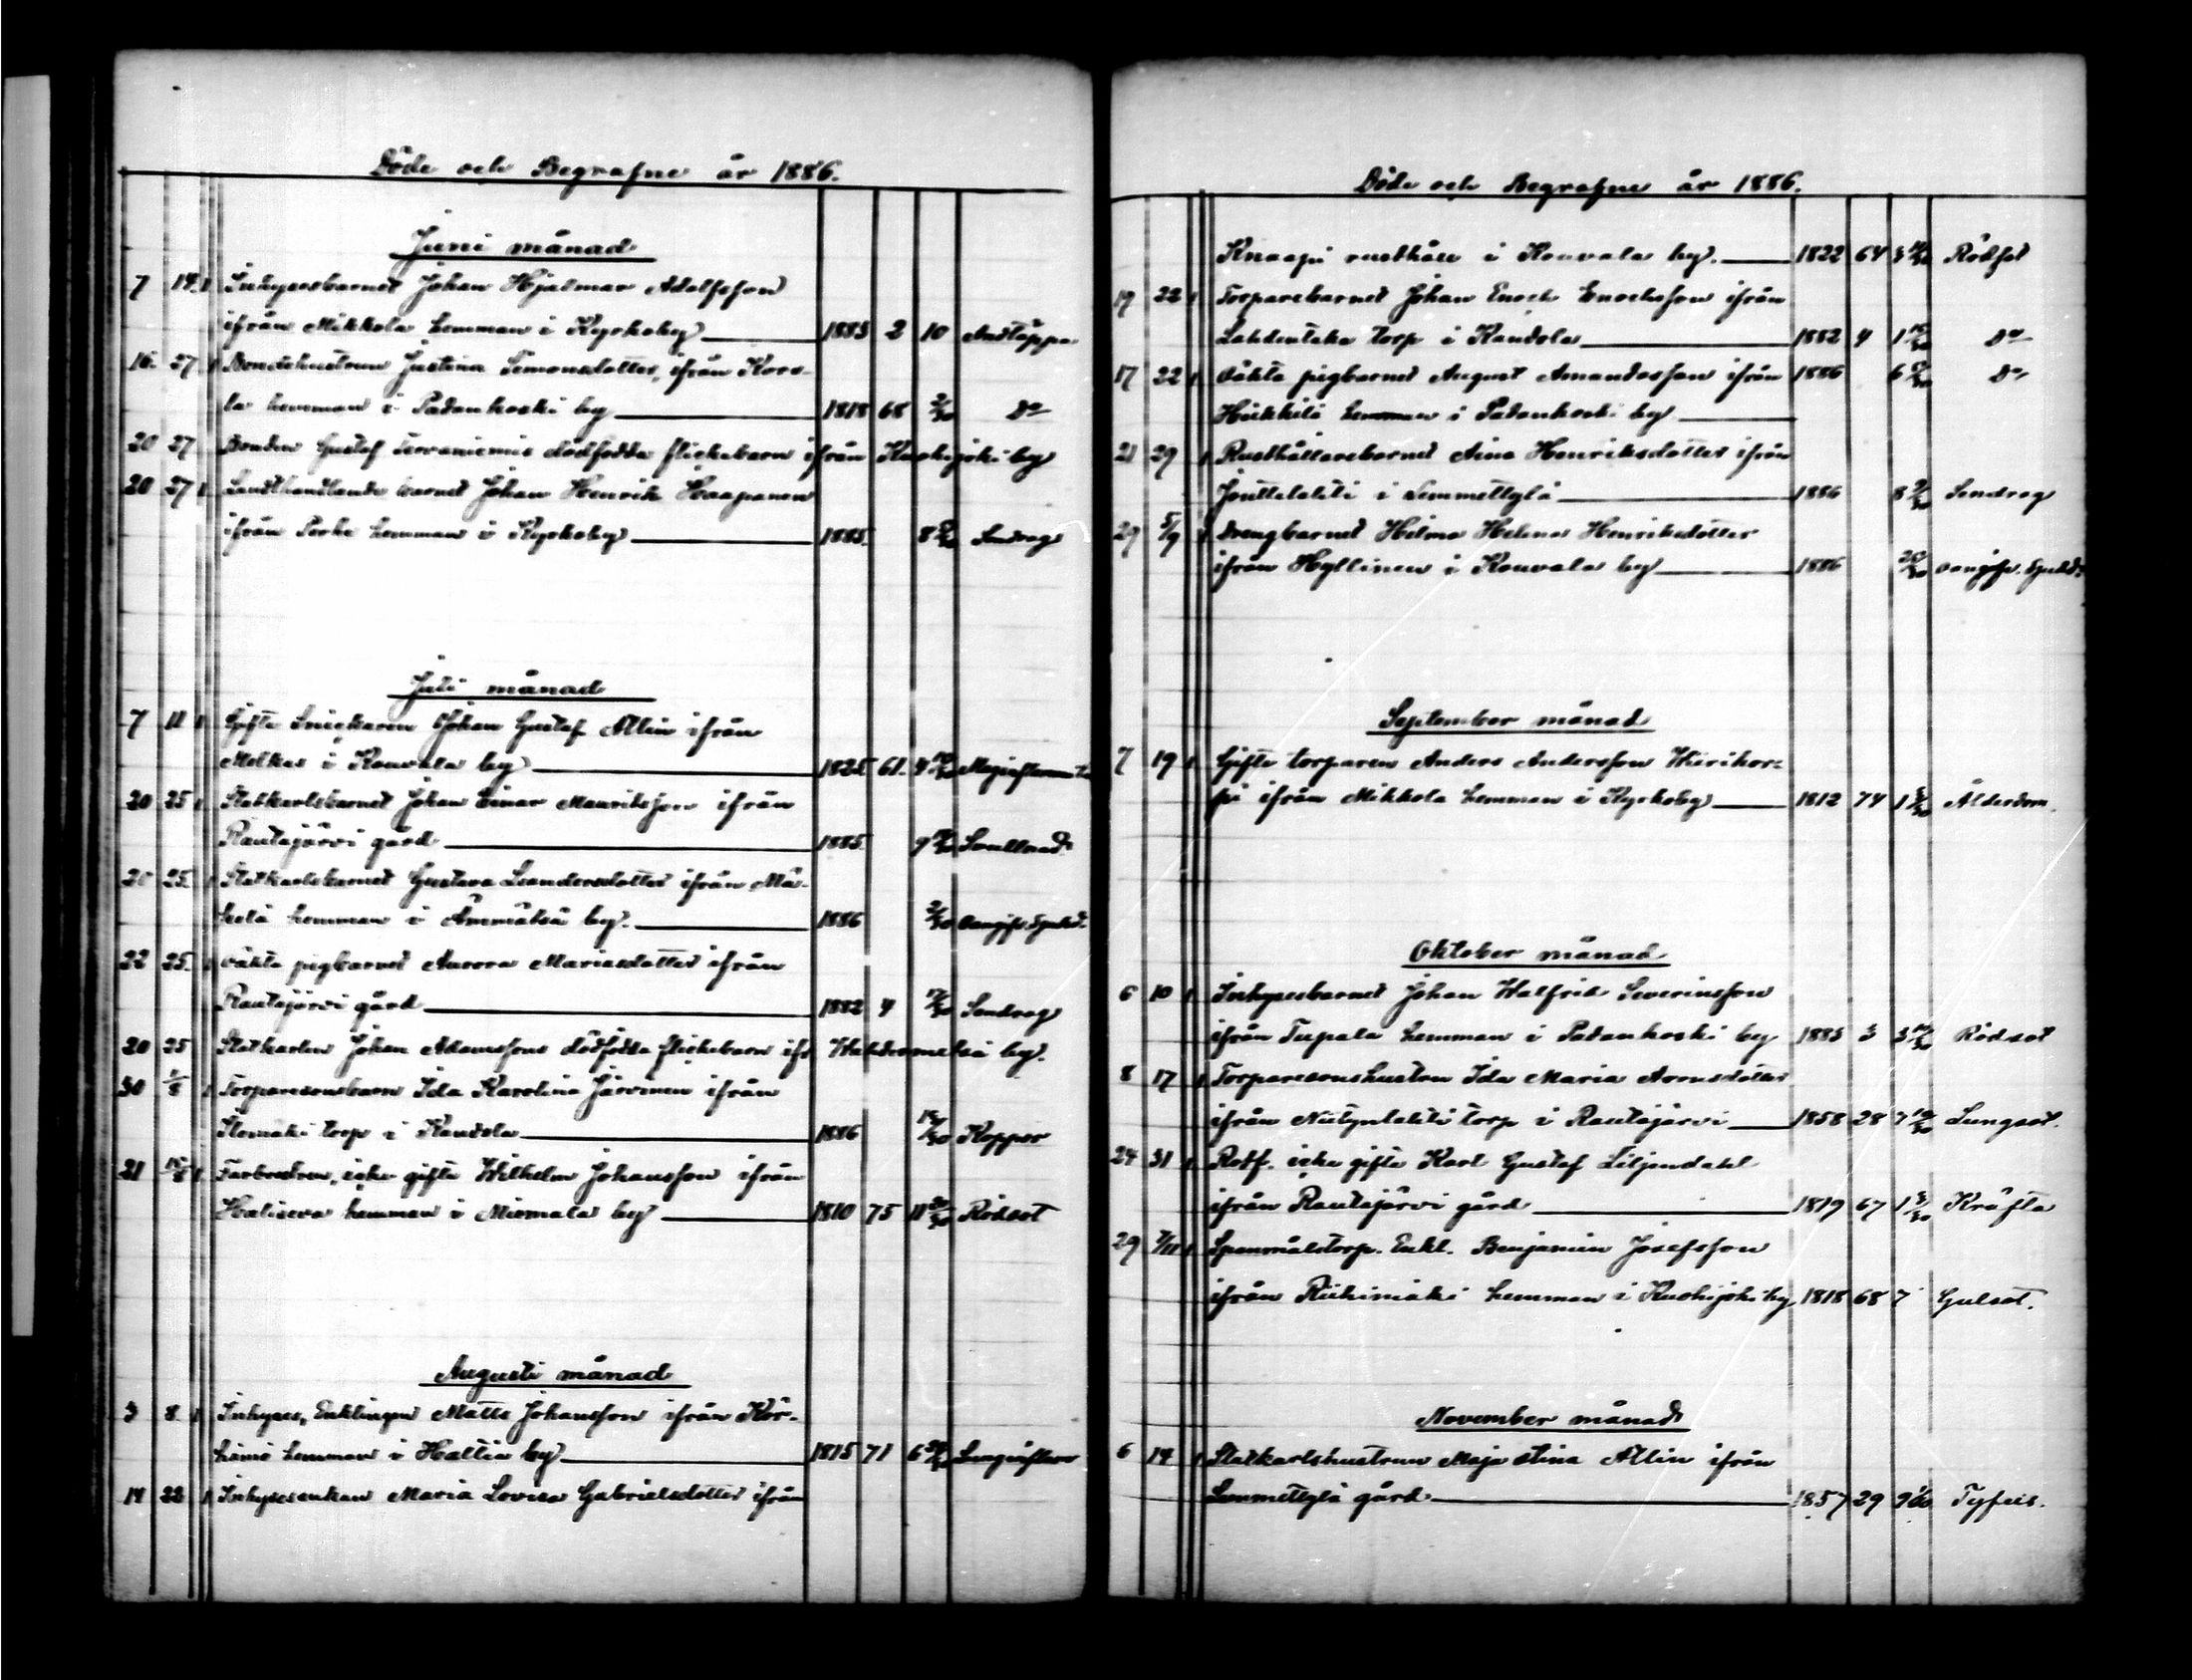 Döde och Begrafne år 1886.
Juni månad
7 14 1 Inhysesbarnet Johan Hjalmar Adolfsson
ifrån Mikkola hemman i Kyrkoby 1883 2 10 Andtäppa
16. 27 1 Bondehustrun Justina Simonsdotter, ifrån Koro-
la hemman i Padankoski by 1818 68 2/30 Do
20 27 Bonden Gustaf dödfödda flickebarn ifrån Kuohijoki by
20 27 1 Landthandlande barnet Johan Henrik Haapanen
ifrån hemman i Kyrkoby 1885. 8 Sendrag
Juli månad
7 11 1 Gifte Snickaren Johan Gustaf Allin ifrån
Melkas i Kouvala by 1825 61. 4
20 25 1 Statkarlsbarnet Johan Einar Mauritsson ifrån
Rautajärvi gård 1885. 9
20 25. 1 Statkarlsbarnet Gustava Leandersdotter ifrån Mä-
kelä hemman i Ämmätsä by. 1886 2/30 oangifv. Spädb.
22 25. 1 oäkta pigbarnet Aurora Mariasdotter ifrån
Rautajärvi gård 1882 4 17/30 Sendrag
20 25 Statkarlen Johan Adamssons dödfödda flickebarn ifr by.
30 1/8 1 Torparesonsbarn Ida Karolina Järvinen ifrån
torp i Kandola 1886 Koppor
21 15/8 1 Farbrodren, icke gifte Wilhelm Johansson ifrån
hemman i by 1810 75 11 Rödsot
Augusti månad
3 8 1 Inhyses, Enklingen Matts Johansson ifrån Kör-
hemman i Hattia by 1815 71 6
14 22 1 Inhysesenkan Maria Lovisa Gabrielsdotter ifrån
Döde och Begrafne år 1886.
Knaapi rusthåll i Kouvala by. 1822 64 3 Rödsot
19 22 1 Torparebarnet Johan Enoch Enochsson ifrån
torp i Kandola 1882 4 1 Do
17 22 1 oäkta pigbarnet August Amandasson ifrån 1886 6 Do
Heikkilä hemman i Padankoski by
21 29 1 Rusthållarebarnet Aina Henriksdotter ifrån
i Lemmettylä 1886 8 Sendrag
29 5/9 1 Drengbarnet Helma Helena Henriksdotter
ifrån Hyllinen i Kouvala by 1886 oangifv. Spädb.
September månad
7 19 1 Gifte torparen Anders Andersson Wiirikor=
pi ifrån Mikkola hemman i Kyrkoby 1812 74 1 Ålderdom.
Oktober månad
6 10 1 Inhysesbarnet Johan Walfrid Severinsson
ifrån Tupala hemman i Padankoski by 1883 3 3 Rödsot
8 17 1 Torparesonshustrun Ida Maria
ifrån torp i Rautajärvi 1858 28 7 Lungsot.
24 31 1 Rotf. icke gifte Karl Gustaf Liljendahl
ifrån Rautajärvi gård 1819 67 1 Kräfta
29 7/11 1 Spanmålstorp. Enkl. Benjamin Josefsson
ifrån Riihimäki hemman i Kuohijoki by 1818 68 7 Gulsot.
November månad
6 14 1 Statkarlshustrun Maja Stina Allin ifrån
Lemmettylä gård 1857 29 9 Tyfus.